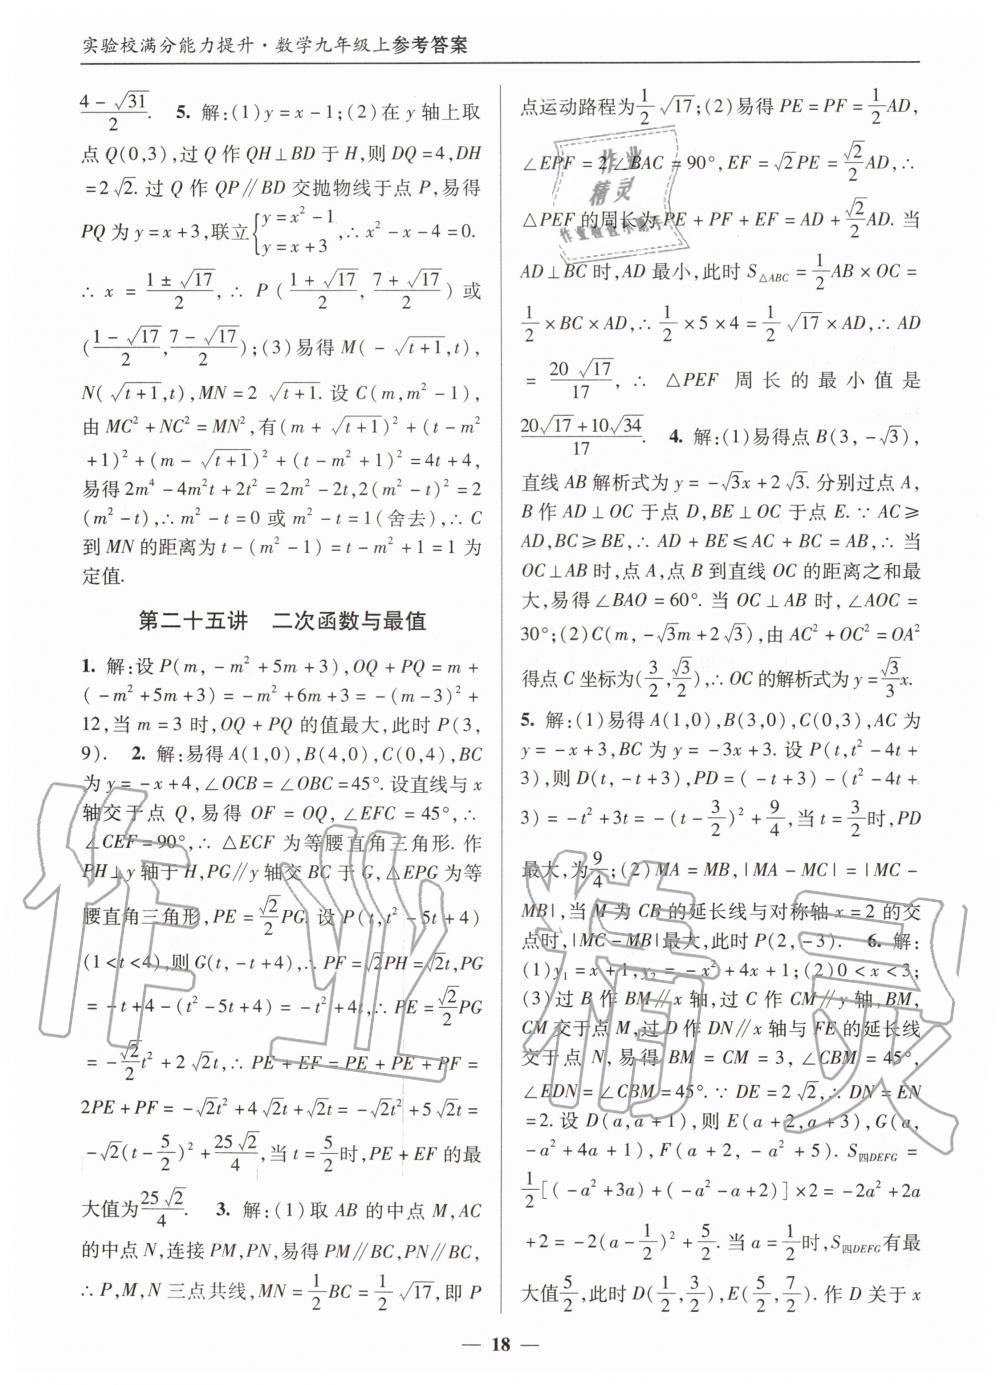 实验校满分能力提升·数学九年级上参考答案
(4-√31)/2. 5. 解:(1)y=x-1;(2)在 y 轴上取
点 Q(0,3),过 Q 作 QH⊥BD 于 H,则 DQ=4,DH
=2√2. 过 Q 作 QP∥BD 交抛物线于点 P,易得
PQ 为 y=x+3,联立{y=x²-1, y=x+3,∴x²-x-4=0.
∴x=(1±√17)/2,∴P((1+√17)/2, (7+√17)/2)或
((1-√17)/2,(7-√17)/2);(3)易得 M(-√(t+1),t),
N(√(t+1),t),MN=2√(t+1). 设 C(m,m²-1),
由 MC²+NC²=MN²,有(m+√(t+1))²+(t-m²
+1)²+(m-√(t+1))²+(t-m²+1)²=4t+4,
易得 2m⁴-4m²t+2t²=2m²-2t,2(m²-t)²=2
(m²-t),∴m²-t=0 或 m²-t=1(舍去),∴C
到 MN 的距离为 t-(m²-1)=t-m²+1=1 为
定值.
第二十五讲 二次函数与最值
1. 解:设 P(m,-m²+5m+3),OQ+PQ=m+
(-m²+5m+3)=-m²+6m+3=-(m-3)²+
12,当 m=3 时,OQ+PQ 的值最大,此时 P(3,
9). 2. 解:易得 A(1,0),B(4,0),C(0,4),BC
为 y=-x+4,∠OCB=∠OBC=45°. 设直线与 x
轴交于点 Q,易得 OF=OQ,∠EFC=45°,∴
∠CEF=90°,∴△ECF 为等腰直角三角形. 作
PH⊥y 轴于 H,PG∥y 轴交 BC 于 G,△EPG 为等
腰直角三角形,PE=(√2/2)PG. 设 P(t,t²-5t+4)
(1<t<4),则 G(t,-t+4),∴PF=√2PH=√2t,PG
=-t+4-(t²-5t+4)=-t²+4t,∴PE=(√2/2)PG
=-(√2/2)t²+2√2t,∴PE+EF=PE+PE+PF=
2PE+PF=-√2t²+4√2t+√2t=-√2t²+5√2t=
-√2(t-5/2)²+25√2/4,当 t=5/2时,PE+EF 的最
大值为25√2/4. 3. 解:(1)取 AB 的中点 M,AC
的中点 N,连接 PM,PN,易得 PM∥BC,PN∥BC,
∴P,M,N 三点共线,MN=1/2 BC=1/2 √17,即 P
点运动路程为1/2 √17;(2)易得 PE=PF=1/2 AD,
∠EPF=2∠BAC=90°,EF=√2PE=(√2/2)AD,∴
△PEF 的周长为 PE+PF+EF=AD+(√2/2)AD. 当
AD⊥BC 时,AD 最小,此时 S△ABC=1/2 AB×OC=
1/2×BC×AD,∴1/2×5×4=1/2 √17×AD,∴AD
=20√17/17,∴△PEF 周长的最小值是
(20√17+10√34)/17. 4. 解:(1)易得点 B(3,-√3),
直线 AB 解析式为 y=-√3x+2√3. 分别过点 A,
B 作 AD⊥OC 于点 D,BE⊥OC 于点 E.∵AC≥
AD,BC≥BE,∴AD+BE≤AC+BC=AB,∴当
OC⊥AB 时,点 A,点 B 到直线 OC 的距离之和最
大,易得∠BAO=60°. 当 OC⊥AB 时,∠AOC=
30°;(2)C(m,-√3m+2√3),由 AC²+OC²=OA²
得点 C 坐标为(3/2,√3/2),∴OC 的解析式为 y=(√3/3)x.
5. 解:(1)易得 A(1,0),B(3,0),C(0,3),AC 为
y=-x+3,BC 为 y=-3x+3. 设 P(t,t²-4t+
3),则 D(t,-t+3),PD=(-t+3)-(t²-4t+
3)=-t²+3t=-(t-3/2)²+9/4,当 t=3/2时,PD
最大,为9/4;(2)MA=MB,|MA-MC|=|MC-
MB|,当 M 为 CB 的延长线与对称轴 x=2 的交
点时,|MC-MB|最大,此时 P(2,-3). 6. 解:
(1)y₁=x+1,y₂=-x²+4x+1;(2)0<x<3;
(3)过 B 作 BM∥x 轴,过 C 作 CM∥y 轴,BM,
CM 交于点 M,过 D 作 DN∥x 轴与 FE 的延长线
交于点 N,易得 BM=CM=3,∠CBM=45°,
∠EDN=∠CBM=45°.∵DE=2√2,∴DN=EN
=2. 设 D(a,a+1),则 E(a+2,a+3),G(a,
-a²+4a+1),F(a+2,-a²+5). S四DEFG=
1/2[(-a²+3a)+(-a²-a+2)]×2=-2a²+2a
+2=-2(a-1/2)²+5/2. 当 a=1/2时,S四DEFG有最
大值5/2,此时 D(1/2,3/2),E(5/2,7/2). 作 D 关于 x
— 18 —
作业精灵